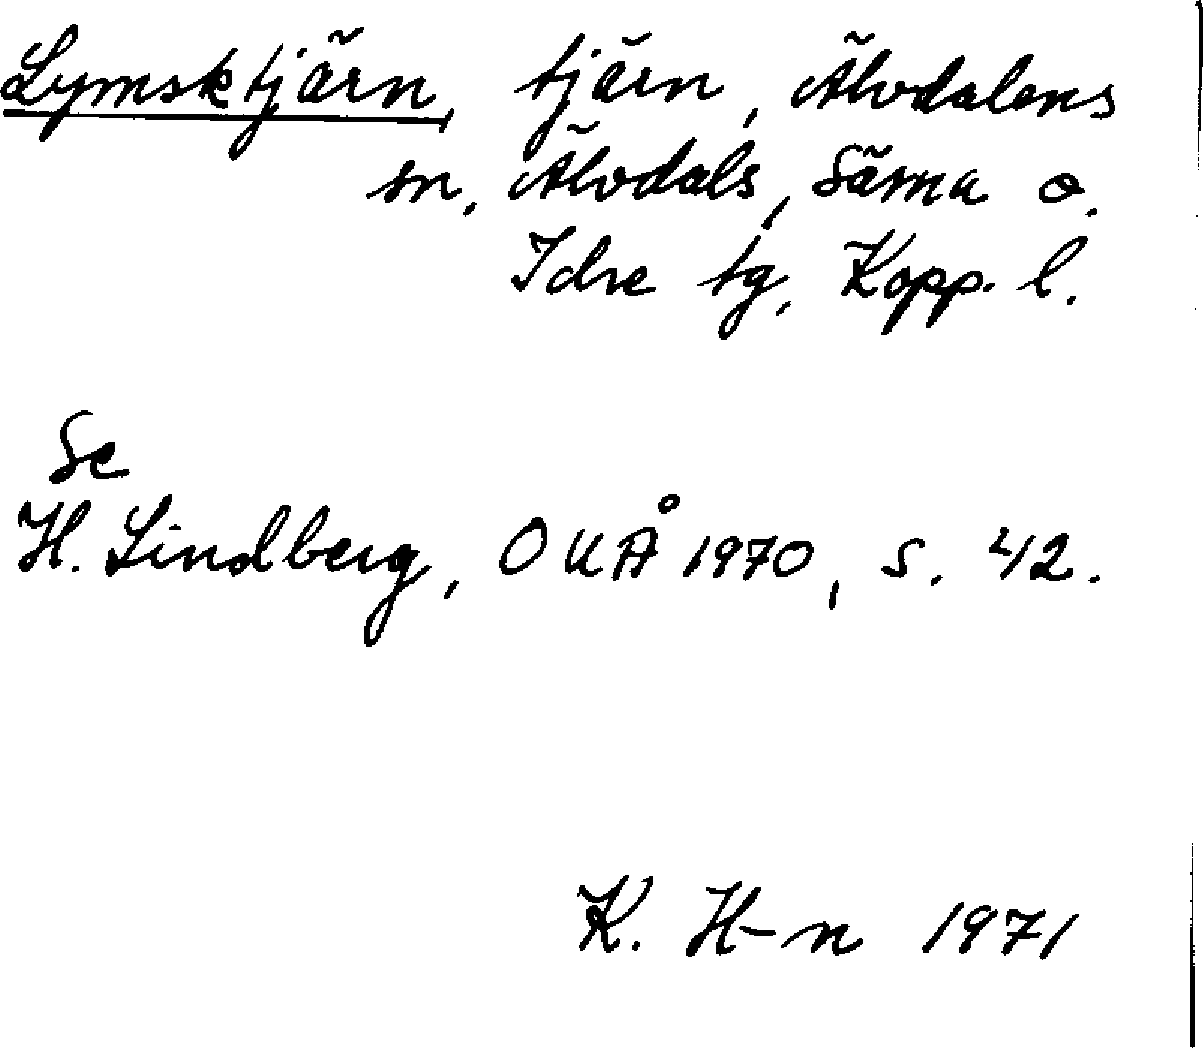 Lymsktjärn, tjärn, Älvdalens
sn, Älvdals, Särna o.
Idre tg, Kopp. l.
Se
H. Lindberg, OUÅ 1970, s. 42.
K. H-n 1971